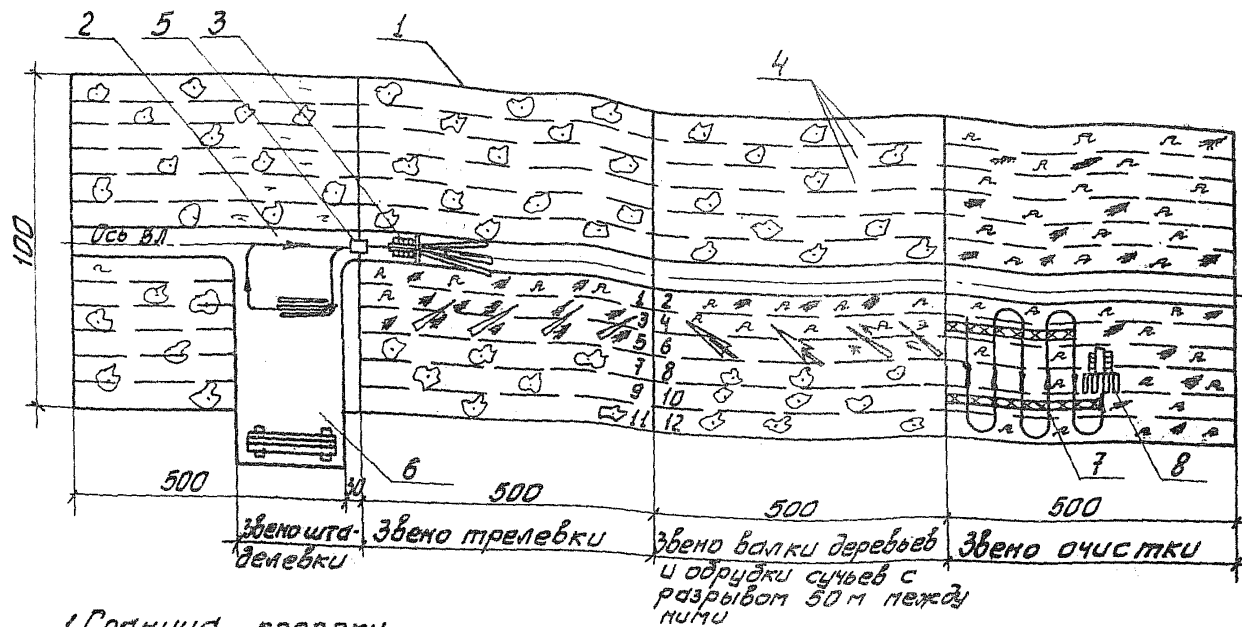 2 5 3 1
4
100
Ось ВЛ
1 2
3 4
5 6
7 8
9 10
11 12
6
7 8
500 30 500 500 500
Звено шта-
делевки
Звено трелевки
Звено валки деревьев
и обрубки сучьев с
разрывом 50 м между
ними
Звено очистки
1 Граница